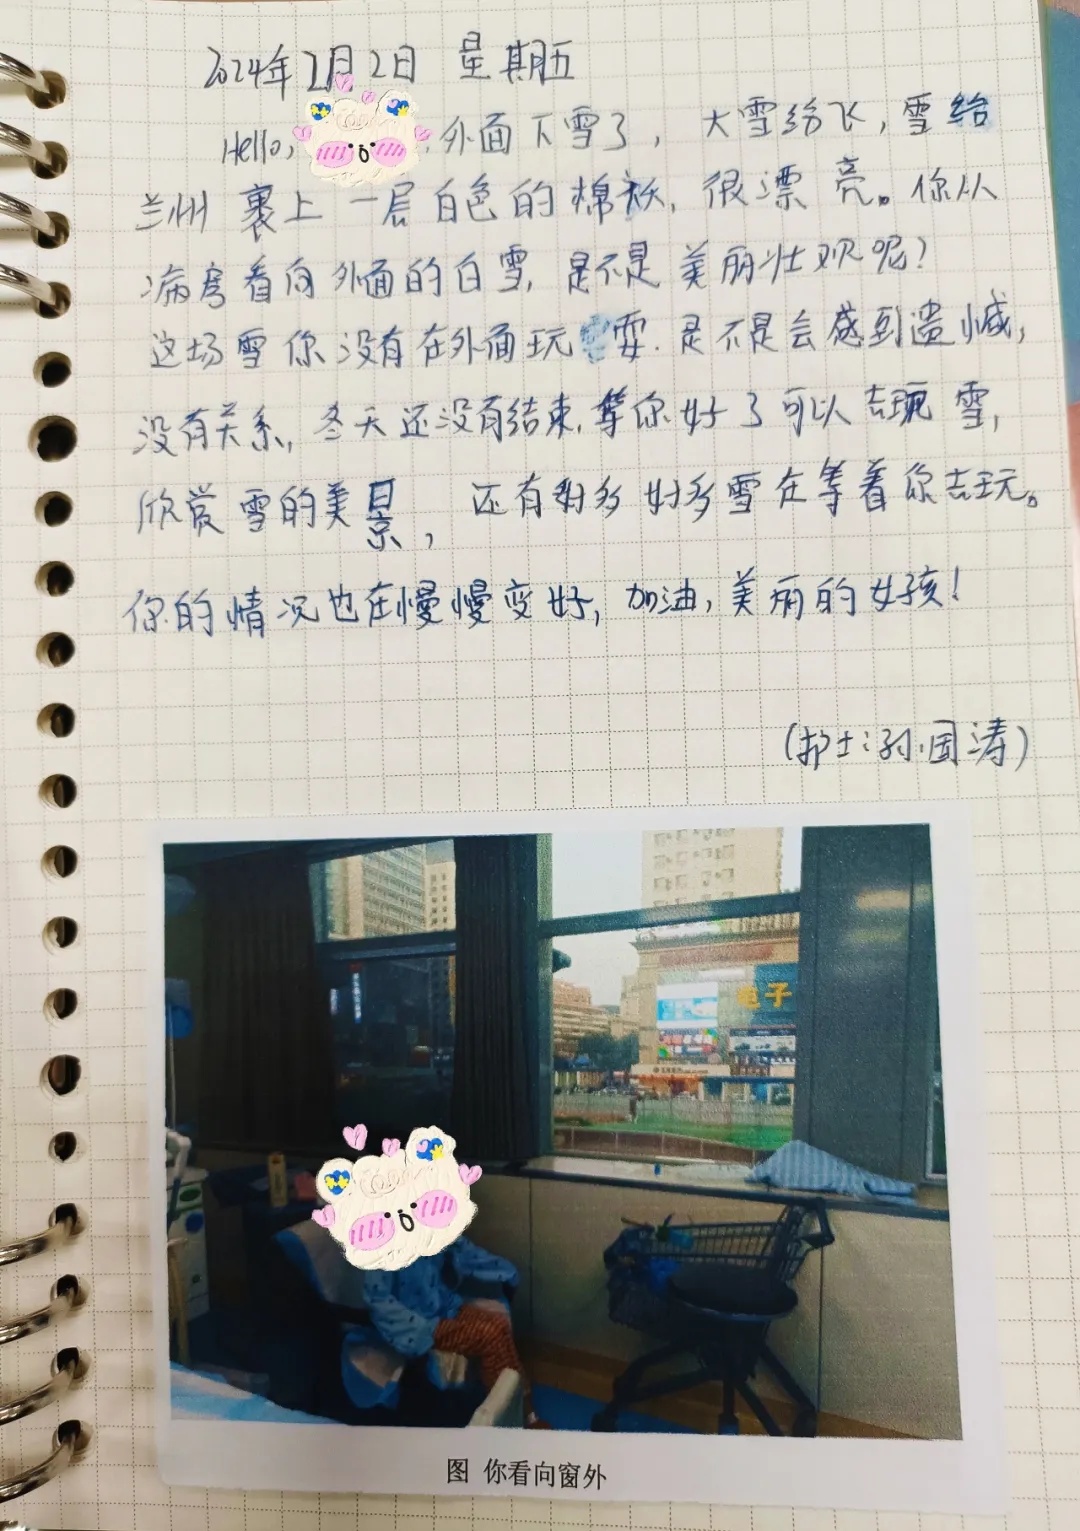 2024年2月2日 星期五
Hello, 外面下雪了，大雪给飞，雪给
兰州裹上一层白色的棉袄，很漂亮。你从
病房看向外面的白雪，是不是美丽壮观呢？
这场雪你没有在外面玩耍.是不是会感到遗憾，
没有关系，冬天还没有结束，等你好了可以去玩雪，
欣赏雪的美景，还有好多好多雪在等着你去玩。
你的情况也在慢慢变好，加油，美丽的女孩！
（护士：孙国涛）
电子
图 你看向窗外